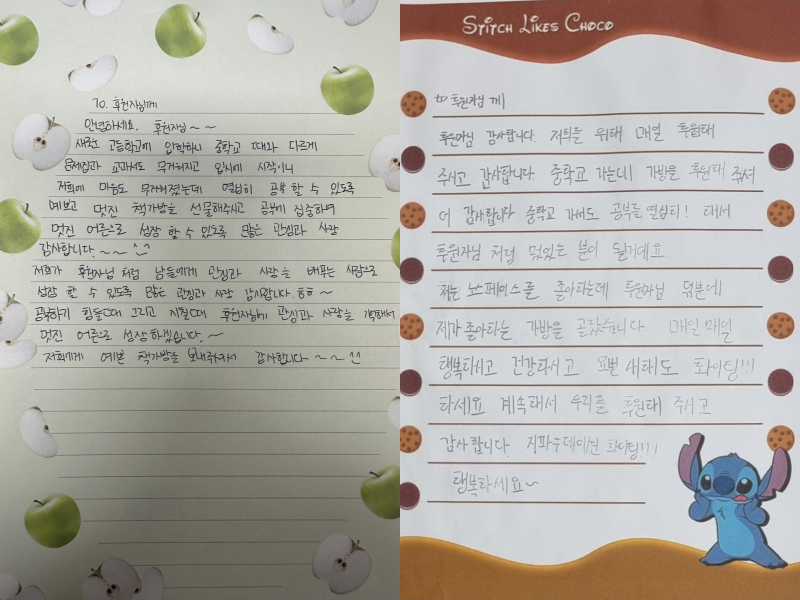 To. 후원자님께
안녕하세요. 후원자님~~
새로운 고등학교에 입학하니 중학교 때와 다르게
문제집과 교과서도 무거워지고 입시에 시작이니
저희에 마음도 무거워졌는데 열심히 공부 할 수 있도록
예쁘고 멋진 책가방을 선물해주시고 공부에 집중하며
멋진 어른으로 성장 할 수 있도록 많은 관심과 사랑
감사합니다.~~^^
저희가 후원자님 처럼 남들에게 관심과 사랑을 베푸는 사람으로
성장 할 수 있도록 많은 관심과 사랑 감사합니다. ㅎㅎ~
공부하기 힘들때 그리고 지칠때 후원자님에 관심과 사랑을 기억해서
멋진 어른으로 성장하겠습니다.~
저희에게 예쁜 책가방을 보내주셔서 감사합니다~~^^
STITCH LIKES CHOCO
to 후원자님 께
후원자님 감사합니다. 저희를 위해 매일 후원해
주시고 감사합니다 중학교 가는데 가방을 후원해 주셔
어 감사합니다 중학교 가서도 공부를 열심히! 해서
후원자님 처럼 멋있는 분이 될거예요
저는 노스페이스를 좋아하는데 후원자님 덕분에
제가 좋아하는 가방을 골랐습니다 매일 매일
행복하시고 건강하시고 요번 새해도 화이팅!!!
하세요 계속해서 우리를 후원해 주시고
감사합니다. 지파운데이션 화이팅!!!
행복하세요~